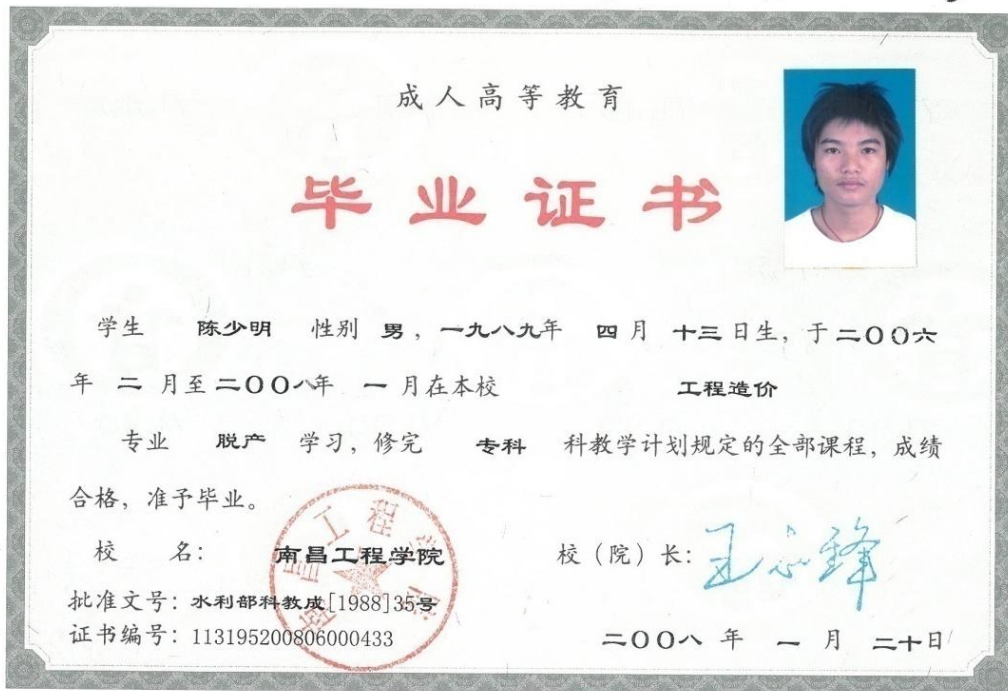 成人高等教育
毕业证书
学生 陈少明 性别 男，一九八九年 四月 十三日生，于二〇〇六
年 二 月至二〇〇八年 一 月在本校 工程造价
专业 脱产 学习，修完 专科 科教学计划规定的全部课程，成绩
合格，准予毕业。
校 名： 南昌工程学院
校（院）长：
批准文号：水利部科教成[1988]35号
证书编号：113195200806000433
二〇〇八 年 一 月 二十日
南昌工程学院